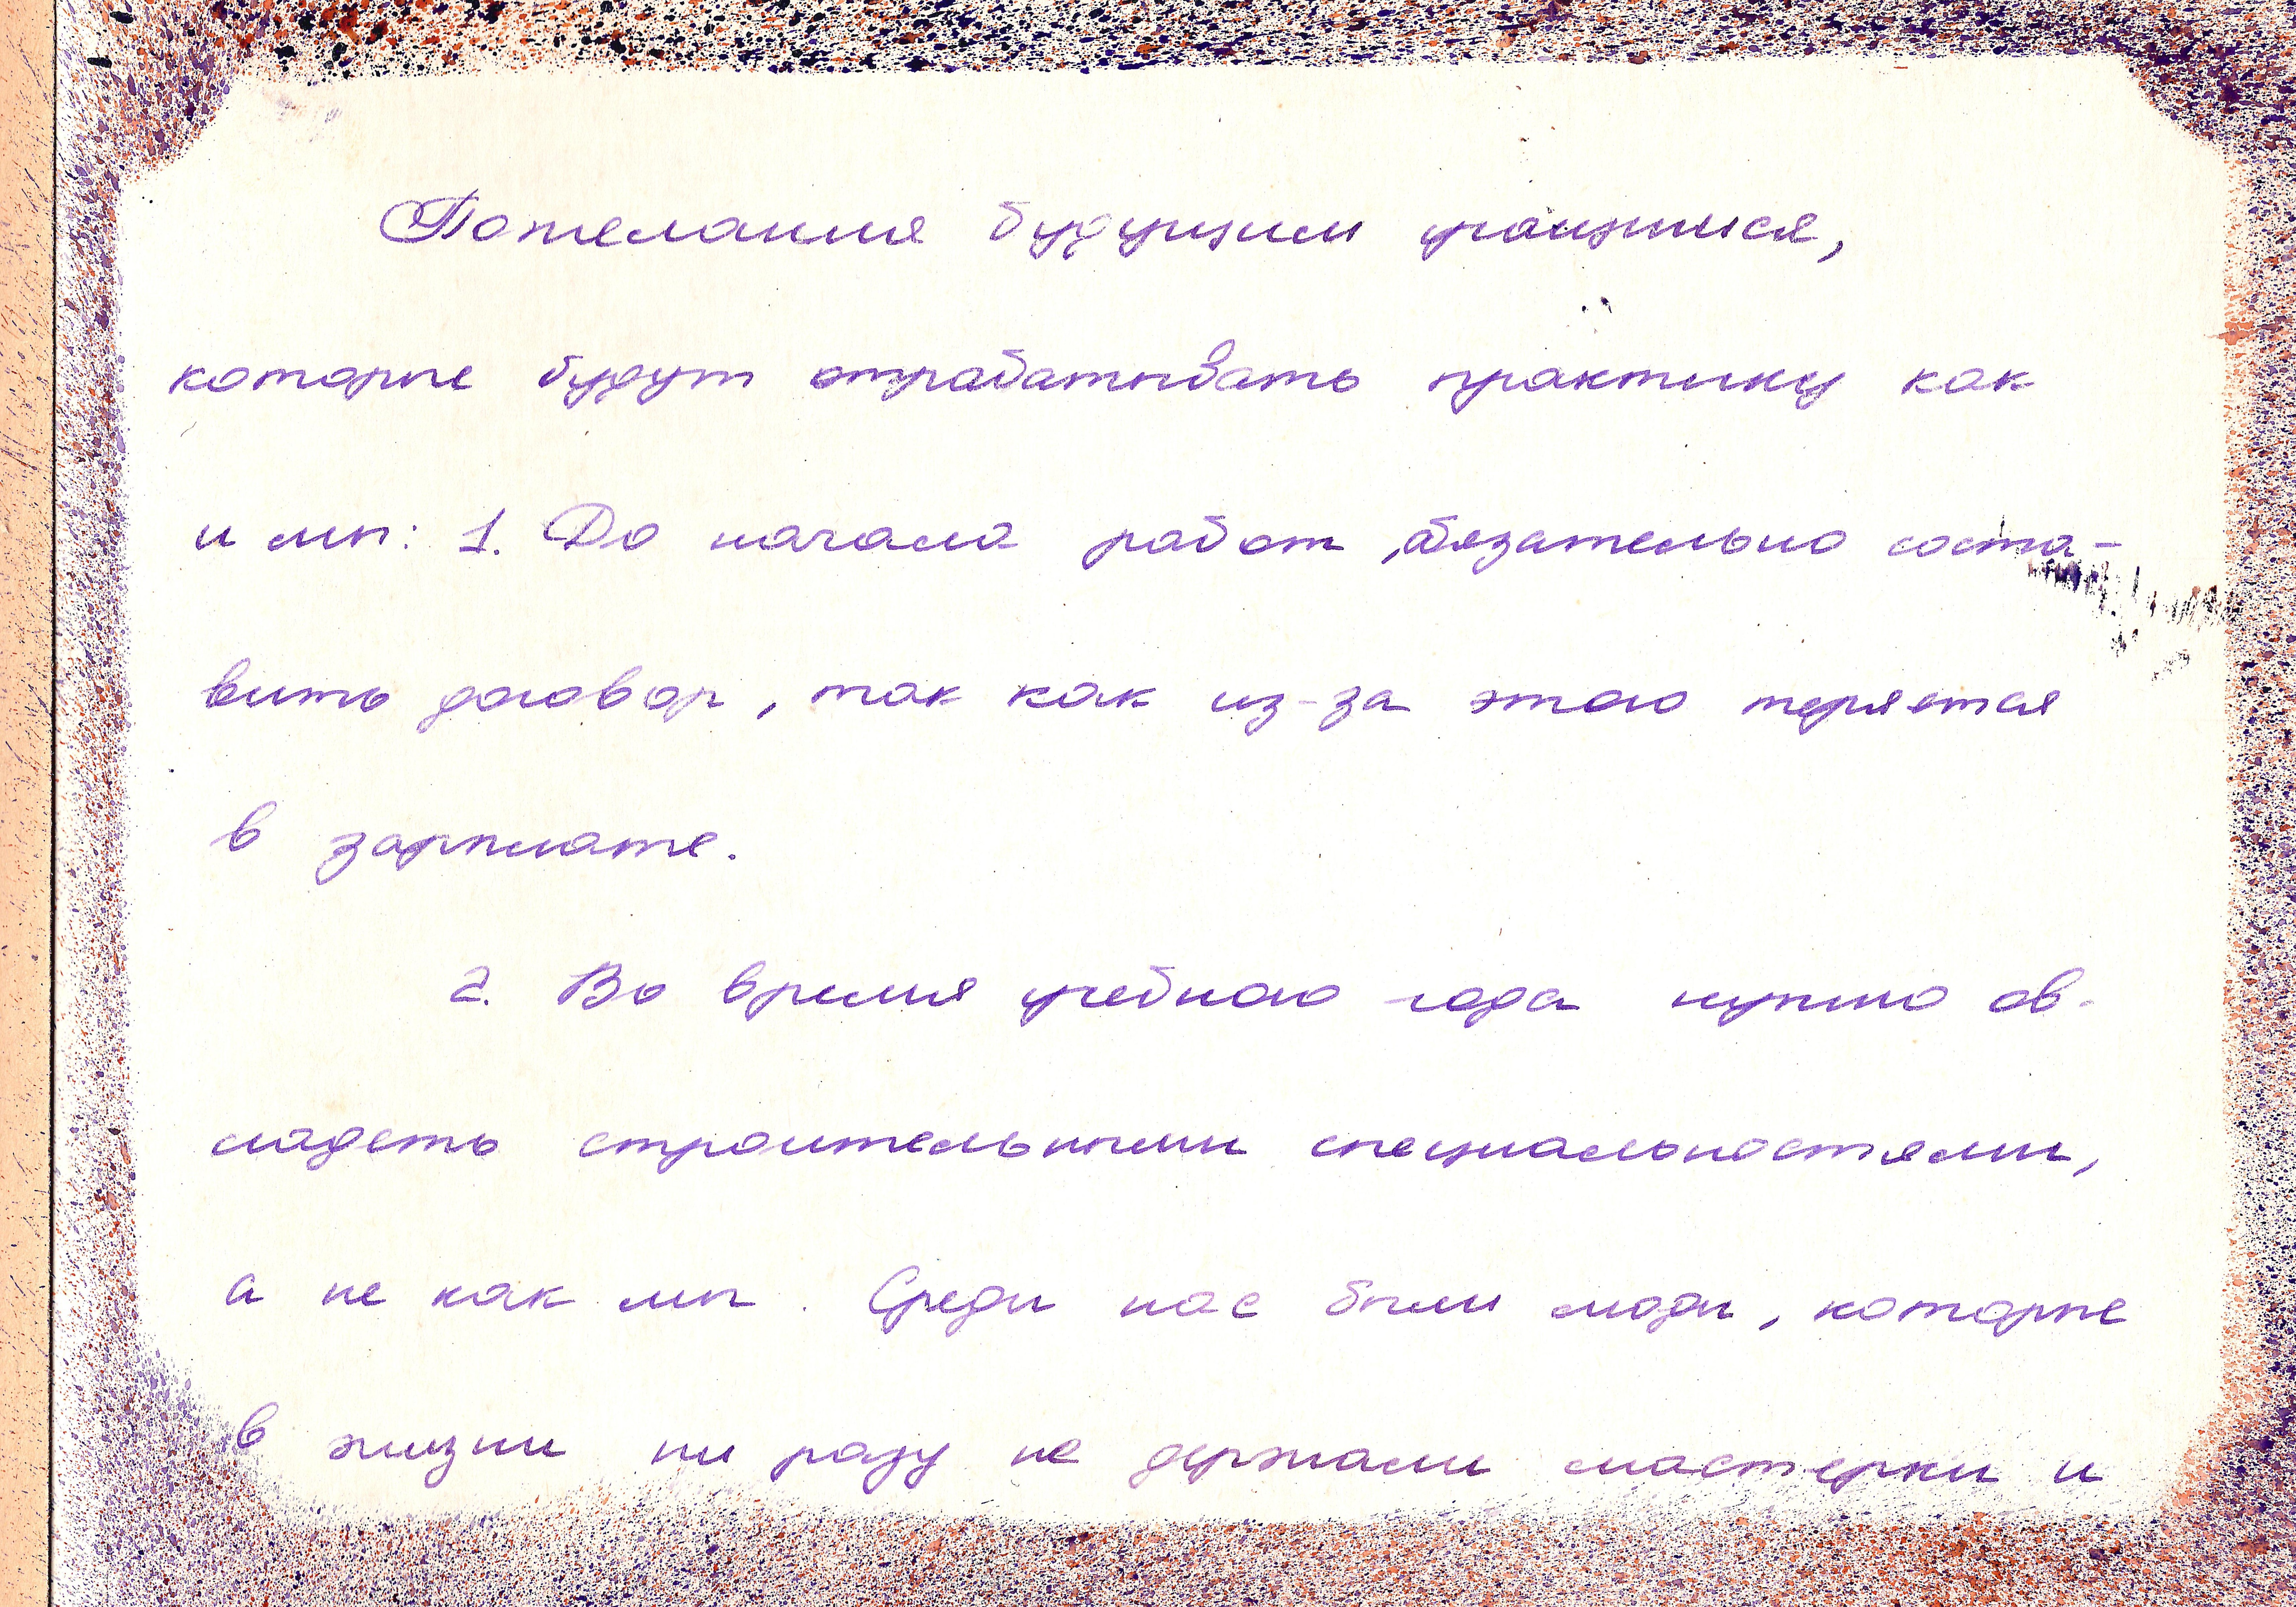 Пожелания будущим учащимся,
которые будут отрабатывать практику как
и мы: 1. До начала работ, обязательно соста-
вить договор, так как из-за этого теряется
в зарплате.
2. Во время учебного года нужно ов-
ладеть строительными специальностями,
а не как мы. Среди нас были люди, которые
в жизни ни разу не держали мастерки и